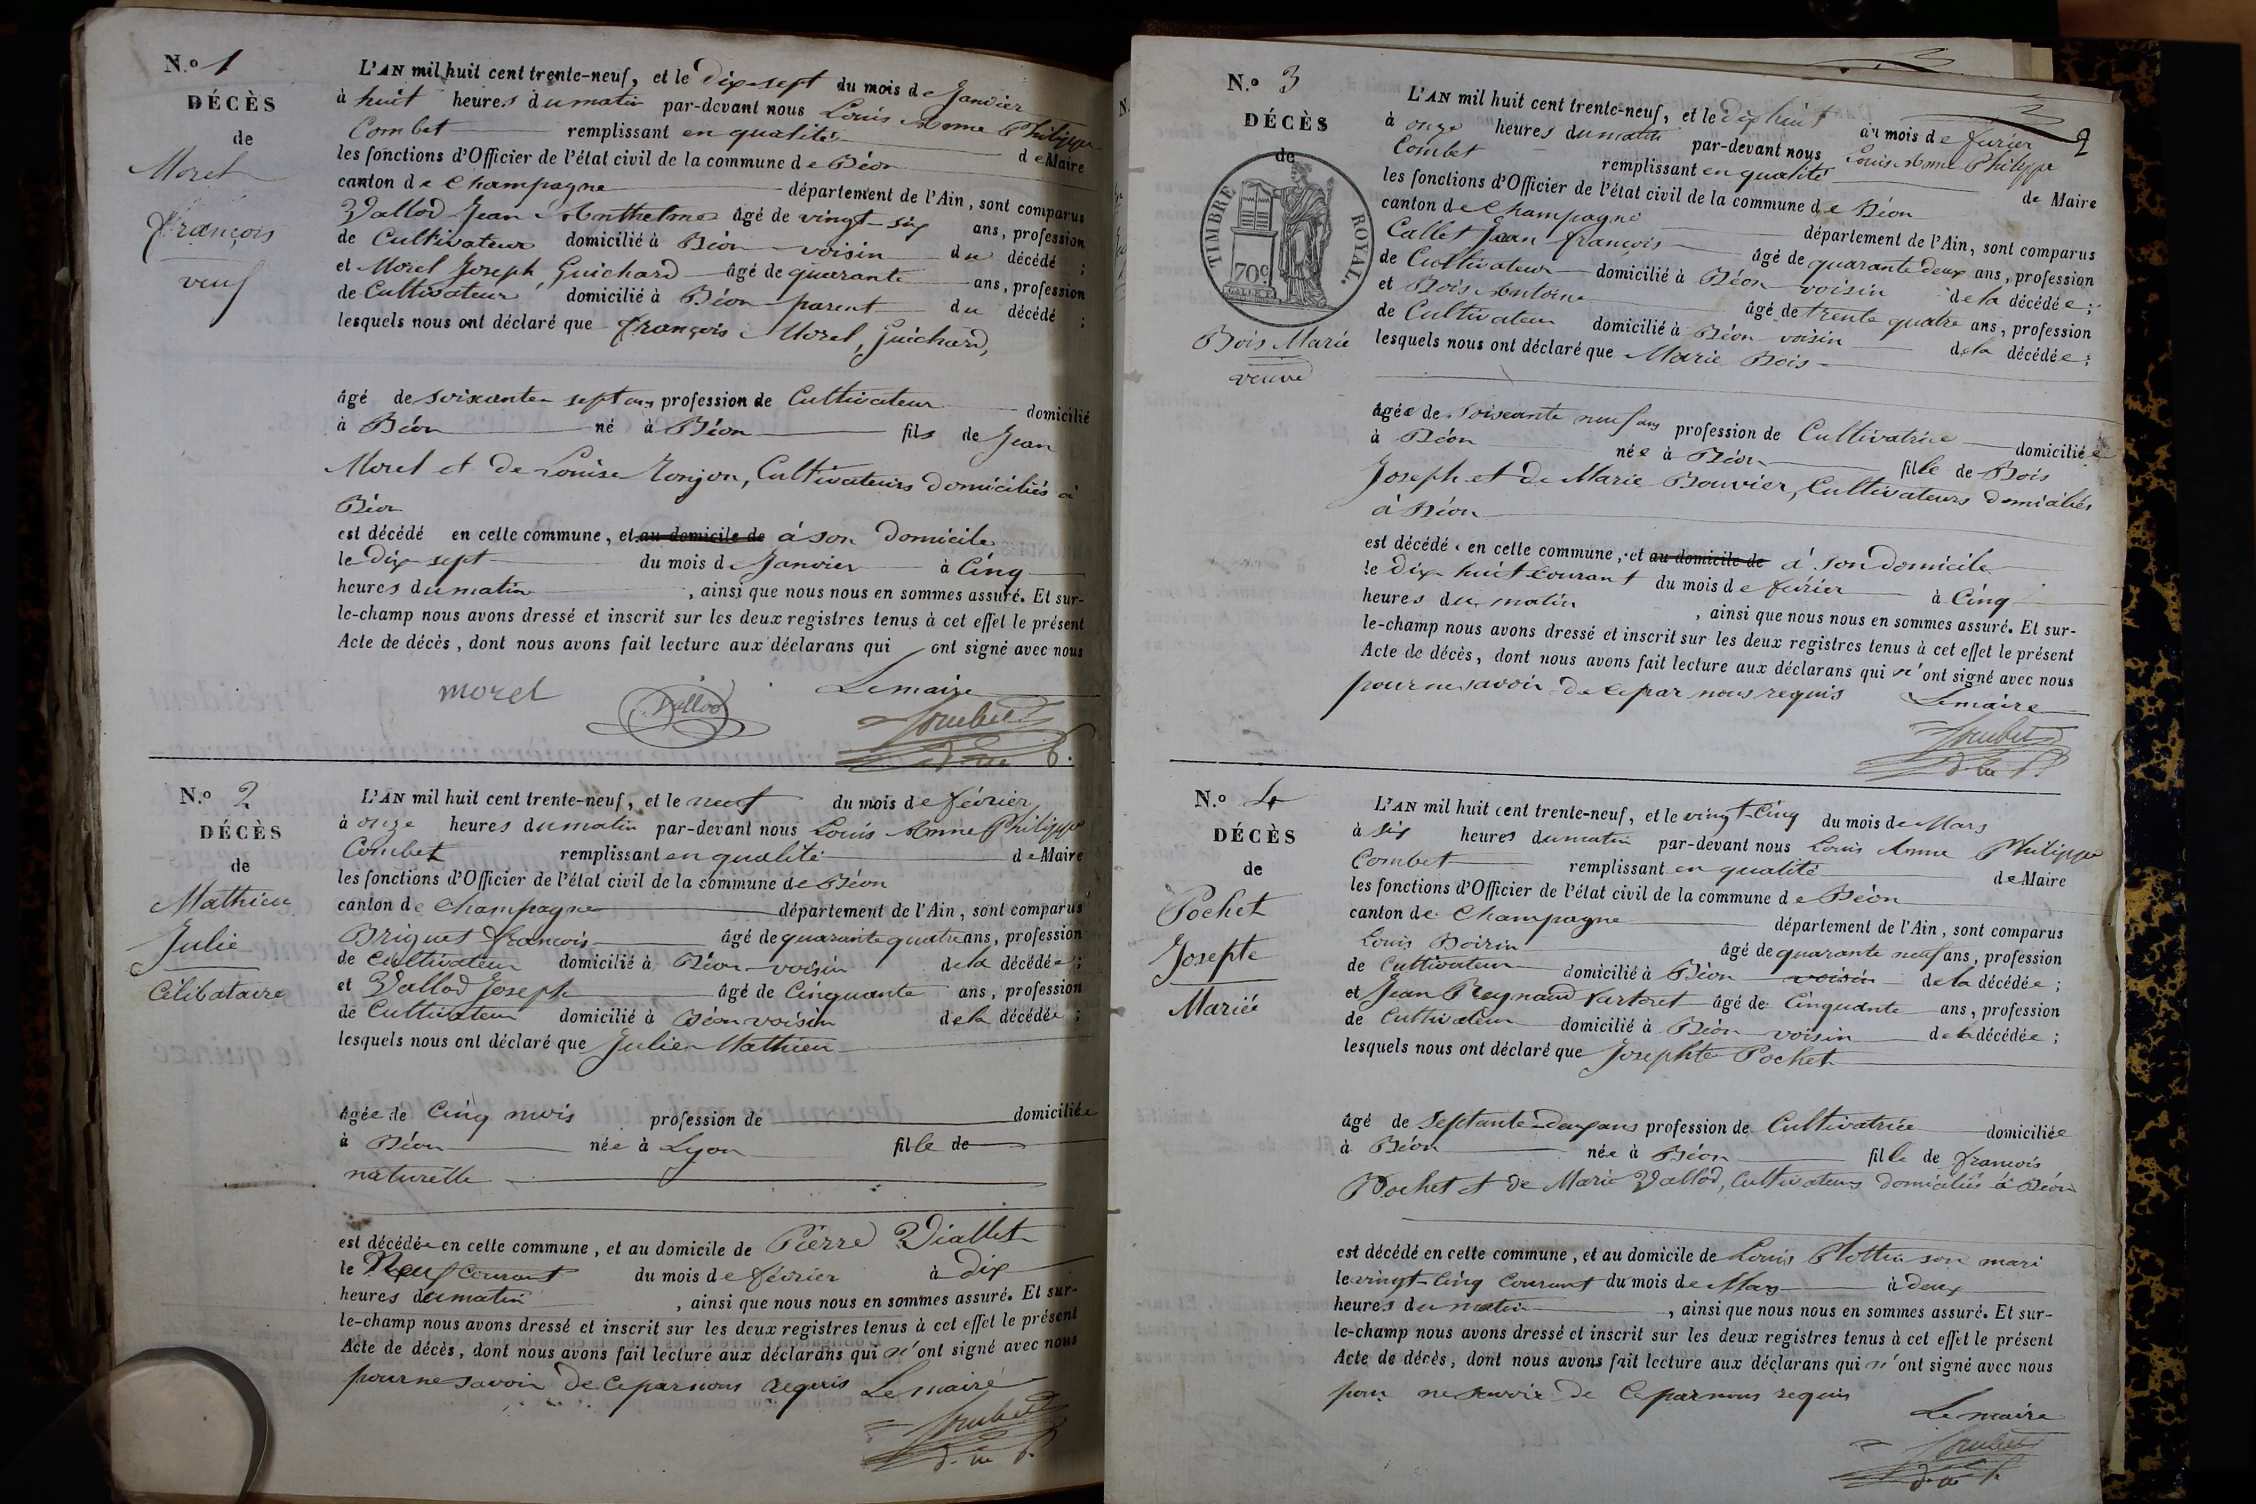 N.º 1
DÉCÈS
de
Morel
François
veuf
L'AN mil huit cent trente-neuf, et le Dix-sept du mois de Janvier
à huit heures du matin par-devant nous Louis Anne Philippe
Combet remplissant en qualité de Maire
les fonctions d'Officier de l'état civil de la commune de Béon
canton de Champagne département de l'Ain, sont comparus
Vallod Jean Anthelme âgé de vingt-six ans, profession
de Cultivateur domicilié à Béon voisin du décédé ;
et Morel Joseph Guichard âgé de quarante ans, profession
de Cultivateur domicilié à Béon parent du décédé ;
lesquels nous ont déclaré que François Morel, Guichard,
âgé de soixante sept ans profession de Cultivateur domicilié
à Béon né à Béon fils de Jean
Morel et de Louise Monjon, Cultivateurs domiciliés à
Béon
est décédé en cette commune, et au domicile de à son domicile
le Dix sept du mois de Janvier à Cinq
heures du matin , ainsi que nous nous en sommes assuré. Et sur-
le-champ nous avons dressé et inscrit sur les deux registres tenus à cet effet le présent
Acte de décès, dont nous avons fait lecture aux déclarans qui ont signé avec nous
morel Vallod Le maire
Combet
N.º 2
DÉCÈS
de
Mathieu
Julie
Célibataire
L'AN mil huit cent trente-neuf, et le neuf du mois de février
à onze heures du matin par-devant nous Louis Anne Philippe
Combet remplissant en qualité de Maire
les fonctions d'Officier de l'état civil de la commune de Béon
canton de Champagne département de l'Ain, sont comparus
Briquet françois âgé de quarante quatre ans, profession
de Cultivateur domicilié à Béon voisin de la décédée ;
et Vallod Joseph âgé de Cinquante ans, profession
de Cultivateur domicilié à Béon voisin de la décédée ;
lesquels nous ont déclaré que Julie Mathieu
âgée de Cinq mois profession de domiciliée
à Béon née à Lyon fille de
naturelle
est décédée en cette commune, et au domicile de Pierre Viallet
le Neuf courant du mois de février à dix
heures du matin , ainsi que nous nous en sommes assuré. Et sur-
le-champ nous avons dressé et inscrit sur les deux registres tenus à cet effet le présent
Acte de décès, dont nous avons fait lecture aux déclarans qui n'ont signé avec nous
pour ne savoir de ce par nous requis Le maire
Combet
2
N.º 3
DÉCÈS
de
TIMBRE ROYAL.
70c.
Bois Marie
veuve
L'AN mil huit cent trente-neuf, et le dix huit du mois de fevrier
à onze heures du matin par-devant nous Louis Anne Philippe
Combet remplissant en qualité de Maire
les fonctions d'Officier de l'état civil de la commune de Béon
canton de Champagne département de l'Ain, sont comparus
Callet Jean françois âgé de quarante deux ans, profession
de Cultivateur domicilié à Béon voisin de la décédée ;
et Bois Antoine âgé de trente quatre ans, profession
de Cultivateur domicilié à Béon voisin de la décédée ;
lesquels nous ont déclaré que Marie Bois
âgée de Soixante neuf ans profession de Cultivatrice domiciliée
à Béon née à Béon fille de Bois
Joseph et de Marie Bouvier, Cultivateurs domiciliés
à Béon
est décédé en cette commune, et au domicile de à son domicile
le dix huit Courant du mois de février à Cinq
heures du matin , ainsi que nous nous en sommes assuré. Et sur-
le-champ nous avons dressé et inscrit sur les deux registres tenus à cet effet le présent
Acte de décès, dont nous avons fait lecture aux déclarans qui n'ont signé avec nous
pour ne savoir de ce par nous requis Le maire
Combet
N.º 4
DÉCÈS
de
Pochet
Josepte
Mariée
L'AN mil huit cent trente-neuf, et le vingt-Cinq du mois de Mars
à six heures du matin par-devant nous Louis Anne Philippe
Combet remplissant en qualité de Maire
les fonctions d'Officier de l'état civil de la commune de Béon
canton de Champagne département de l'Ain, sont comparus
Louis Boirin âgé de quarante neuf ans, profession
de Cultivateur domicilié à Béon voisin de la décédée ;
et Jean Reynaud âgé de Cinquante ans, profession
de Cultivateur domicilié à Béon voisin de la décédée ;
lesquels nous ont déclaré que Josephte Pochet
âgé de Septante-deux ans profession de Cultivatrice domiciliée
à Béon née à Béon fille de françois
Pochet et de Marie Vallod, Cultivateurs domiciliés à Béon
est décédé en cette commune, et au domicile de Louis son mari
le vingt-Cinq Courant du mois de Mars à deux
heures du matin , ainsi que nous nous en sommes assuré. Et sur-
le-champ nous avons dressé et inscrit sur les deux registres tenus à cet effet le présent
Acte de décès, dont nous avons fait lecture aux déclarans qui n'ont signé avec nous
pour ne savoir de ce par nous requis
Le maire
Combet